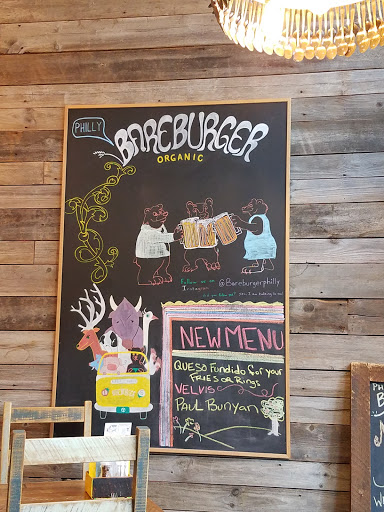 PHILLY
BAREBURGER
ORGANIC
Follow us on
Instagram
@Bareburgerphilly
NEW MENU
QUESO Fundido for your
FRIES OR Rings
VELVIS
PAUL BUNYAN